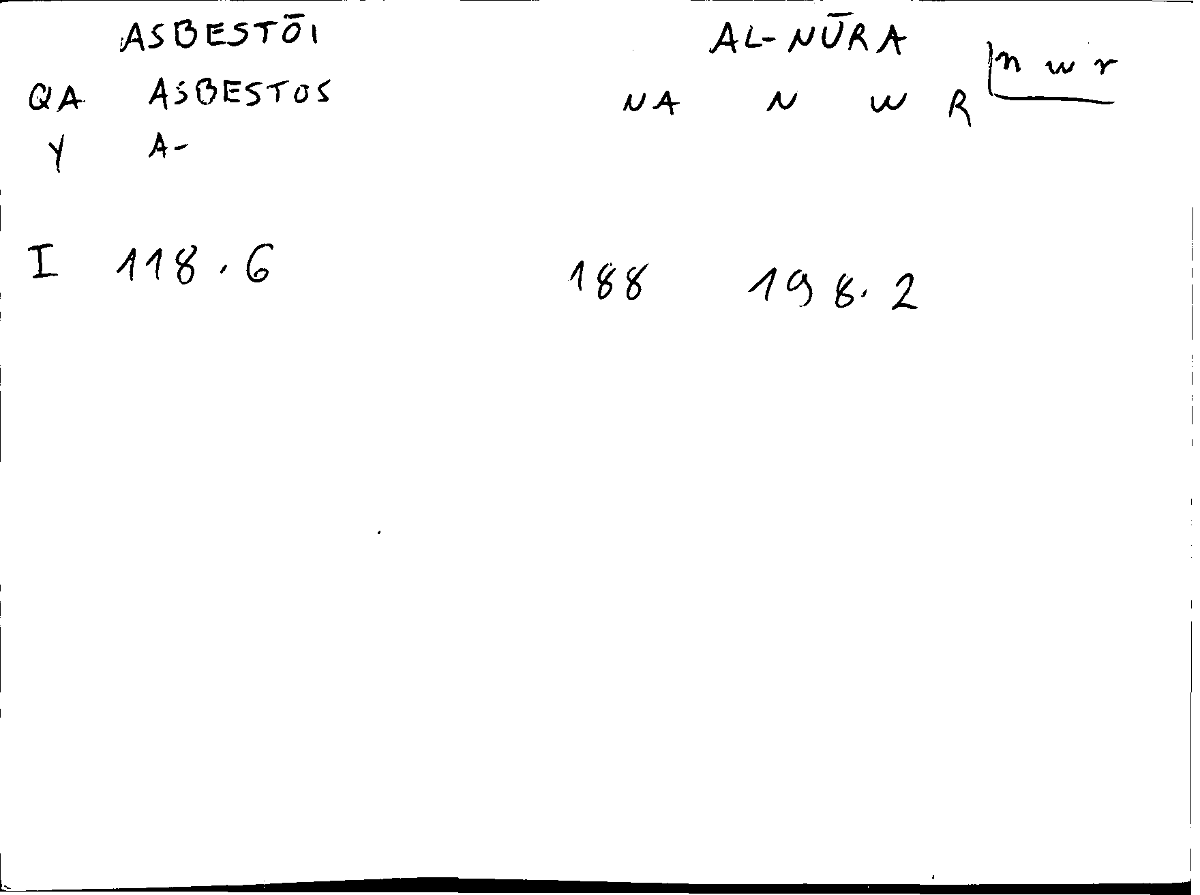 ASBESTŌI AL-NŪRA
QA ASBESTOS NA N W R n w r
Y A-
I 118.6 188 198.2